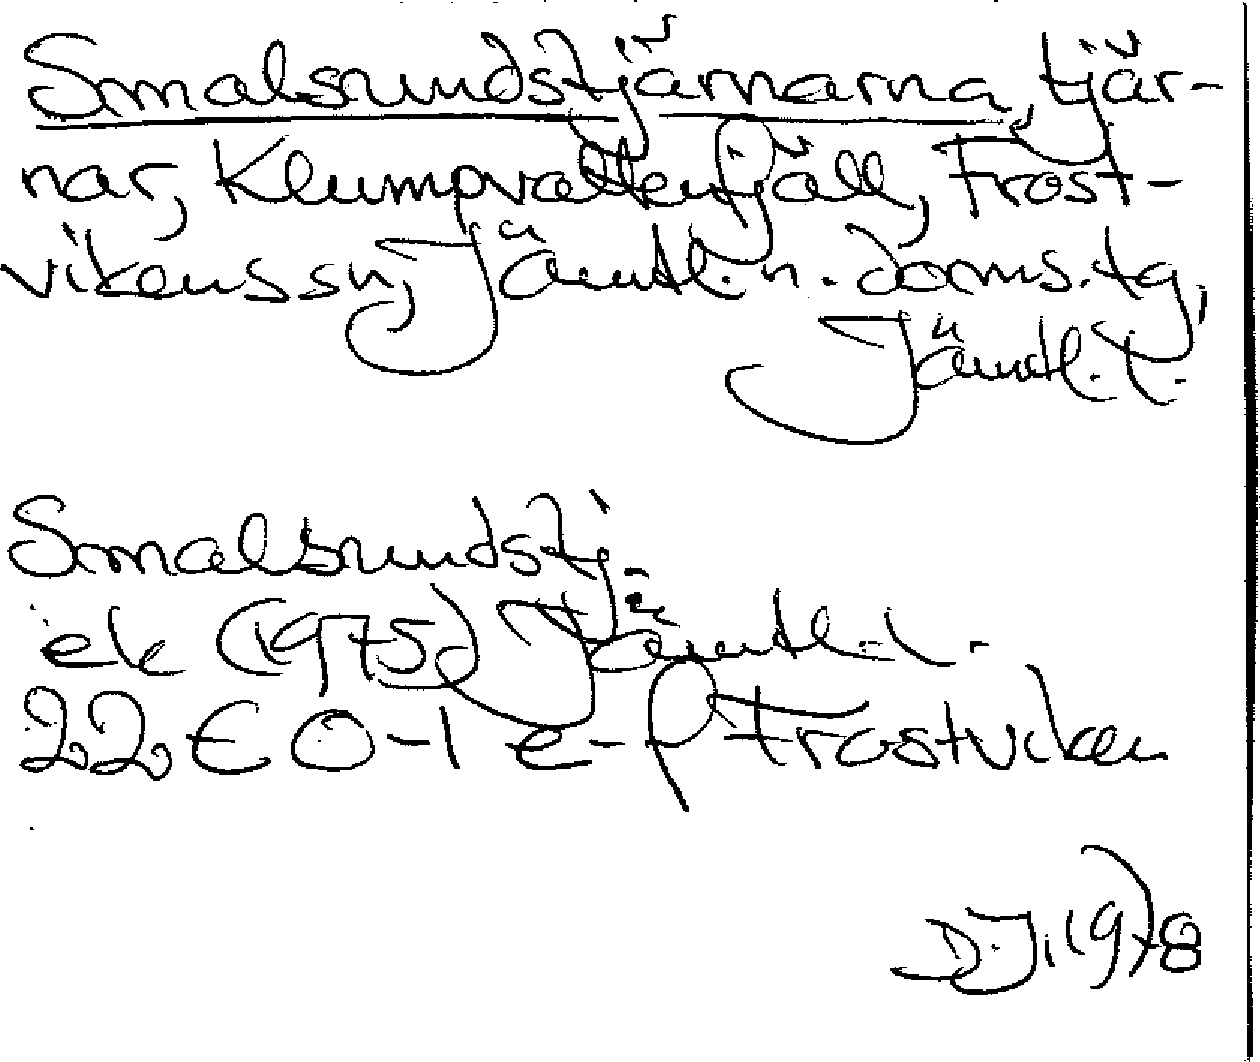 Smalsundstjärnarna, tjär-
nar, Klumpvattenfjäll, Frost-
vikens sn, Jämtl. n. doms. tg,
Jämtl. l.
Smalsundstj.
ek (1975) Jämtl. l.
22E 0-1 e-f Frostviken
D.J. 1978